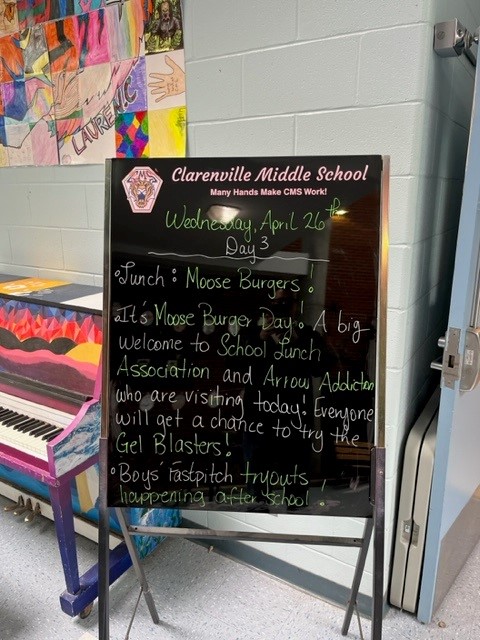 LAURENIC
CMS
Clarenville Middle School
Many Hands Make CMS Work!
Wednesday, April 26th
Day 3
•Lunch: Moose Burgers!
•It's Moose Burger Day! A big
welcome to School Lunch
Association and Arrow Addiction
who are visiting today! Everyone
will get a chance to try the
Gel Blasters!
•Boys' Fastpitch tryouts
happening after school!